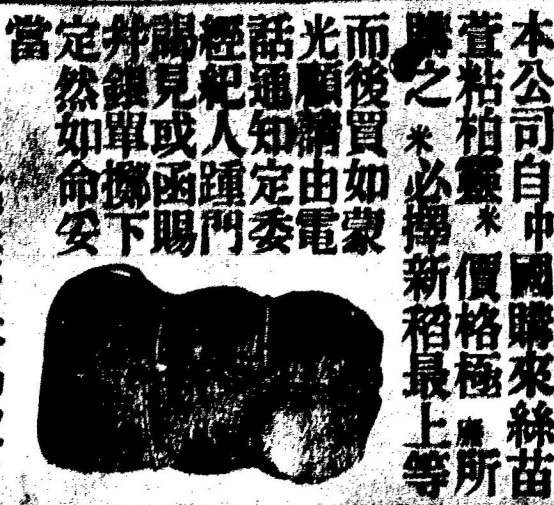 本公司自中國購來絲苗
萱粘柏靈米價格極廉所
購之米必擇新稻最上等
而後買如蒙
光顧請由電
話通知定委
經紀人踵門
謁見或函賜
丼銀單擲下
定然如命妥
當